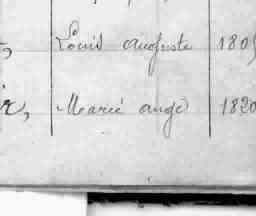 Louis auguste 180
r, Marie ange 1820